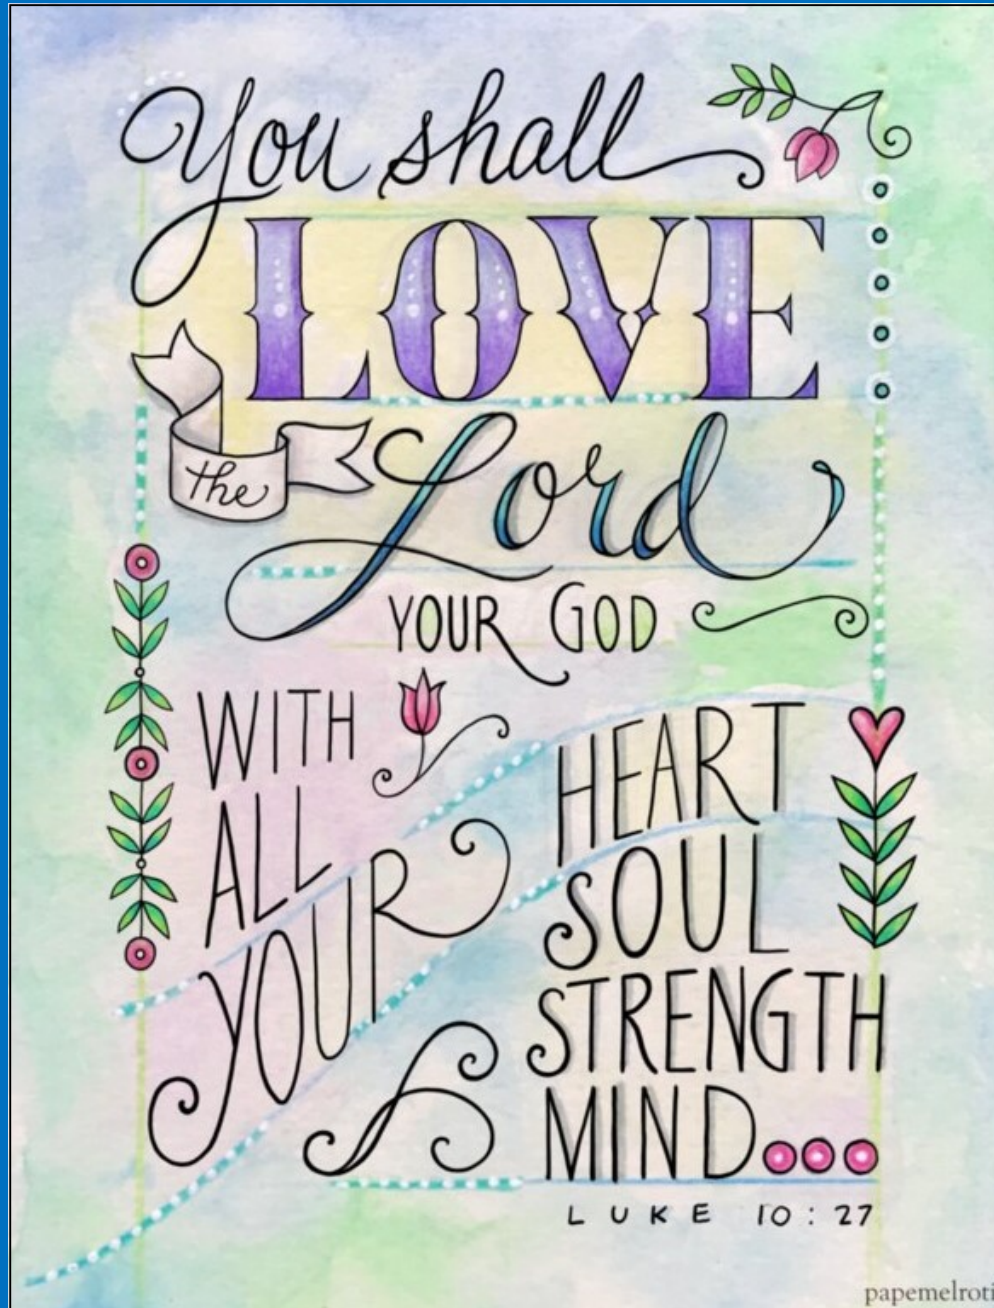 You shall
LOVE
the Lord
YOUR GOD
WITH
ALL
YOUR
HEART
SOUL
STRENGTH
MIND...
LUKE 10:27
papemelroti